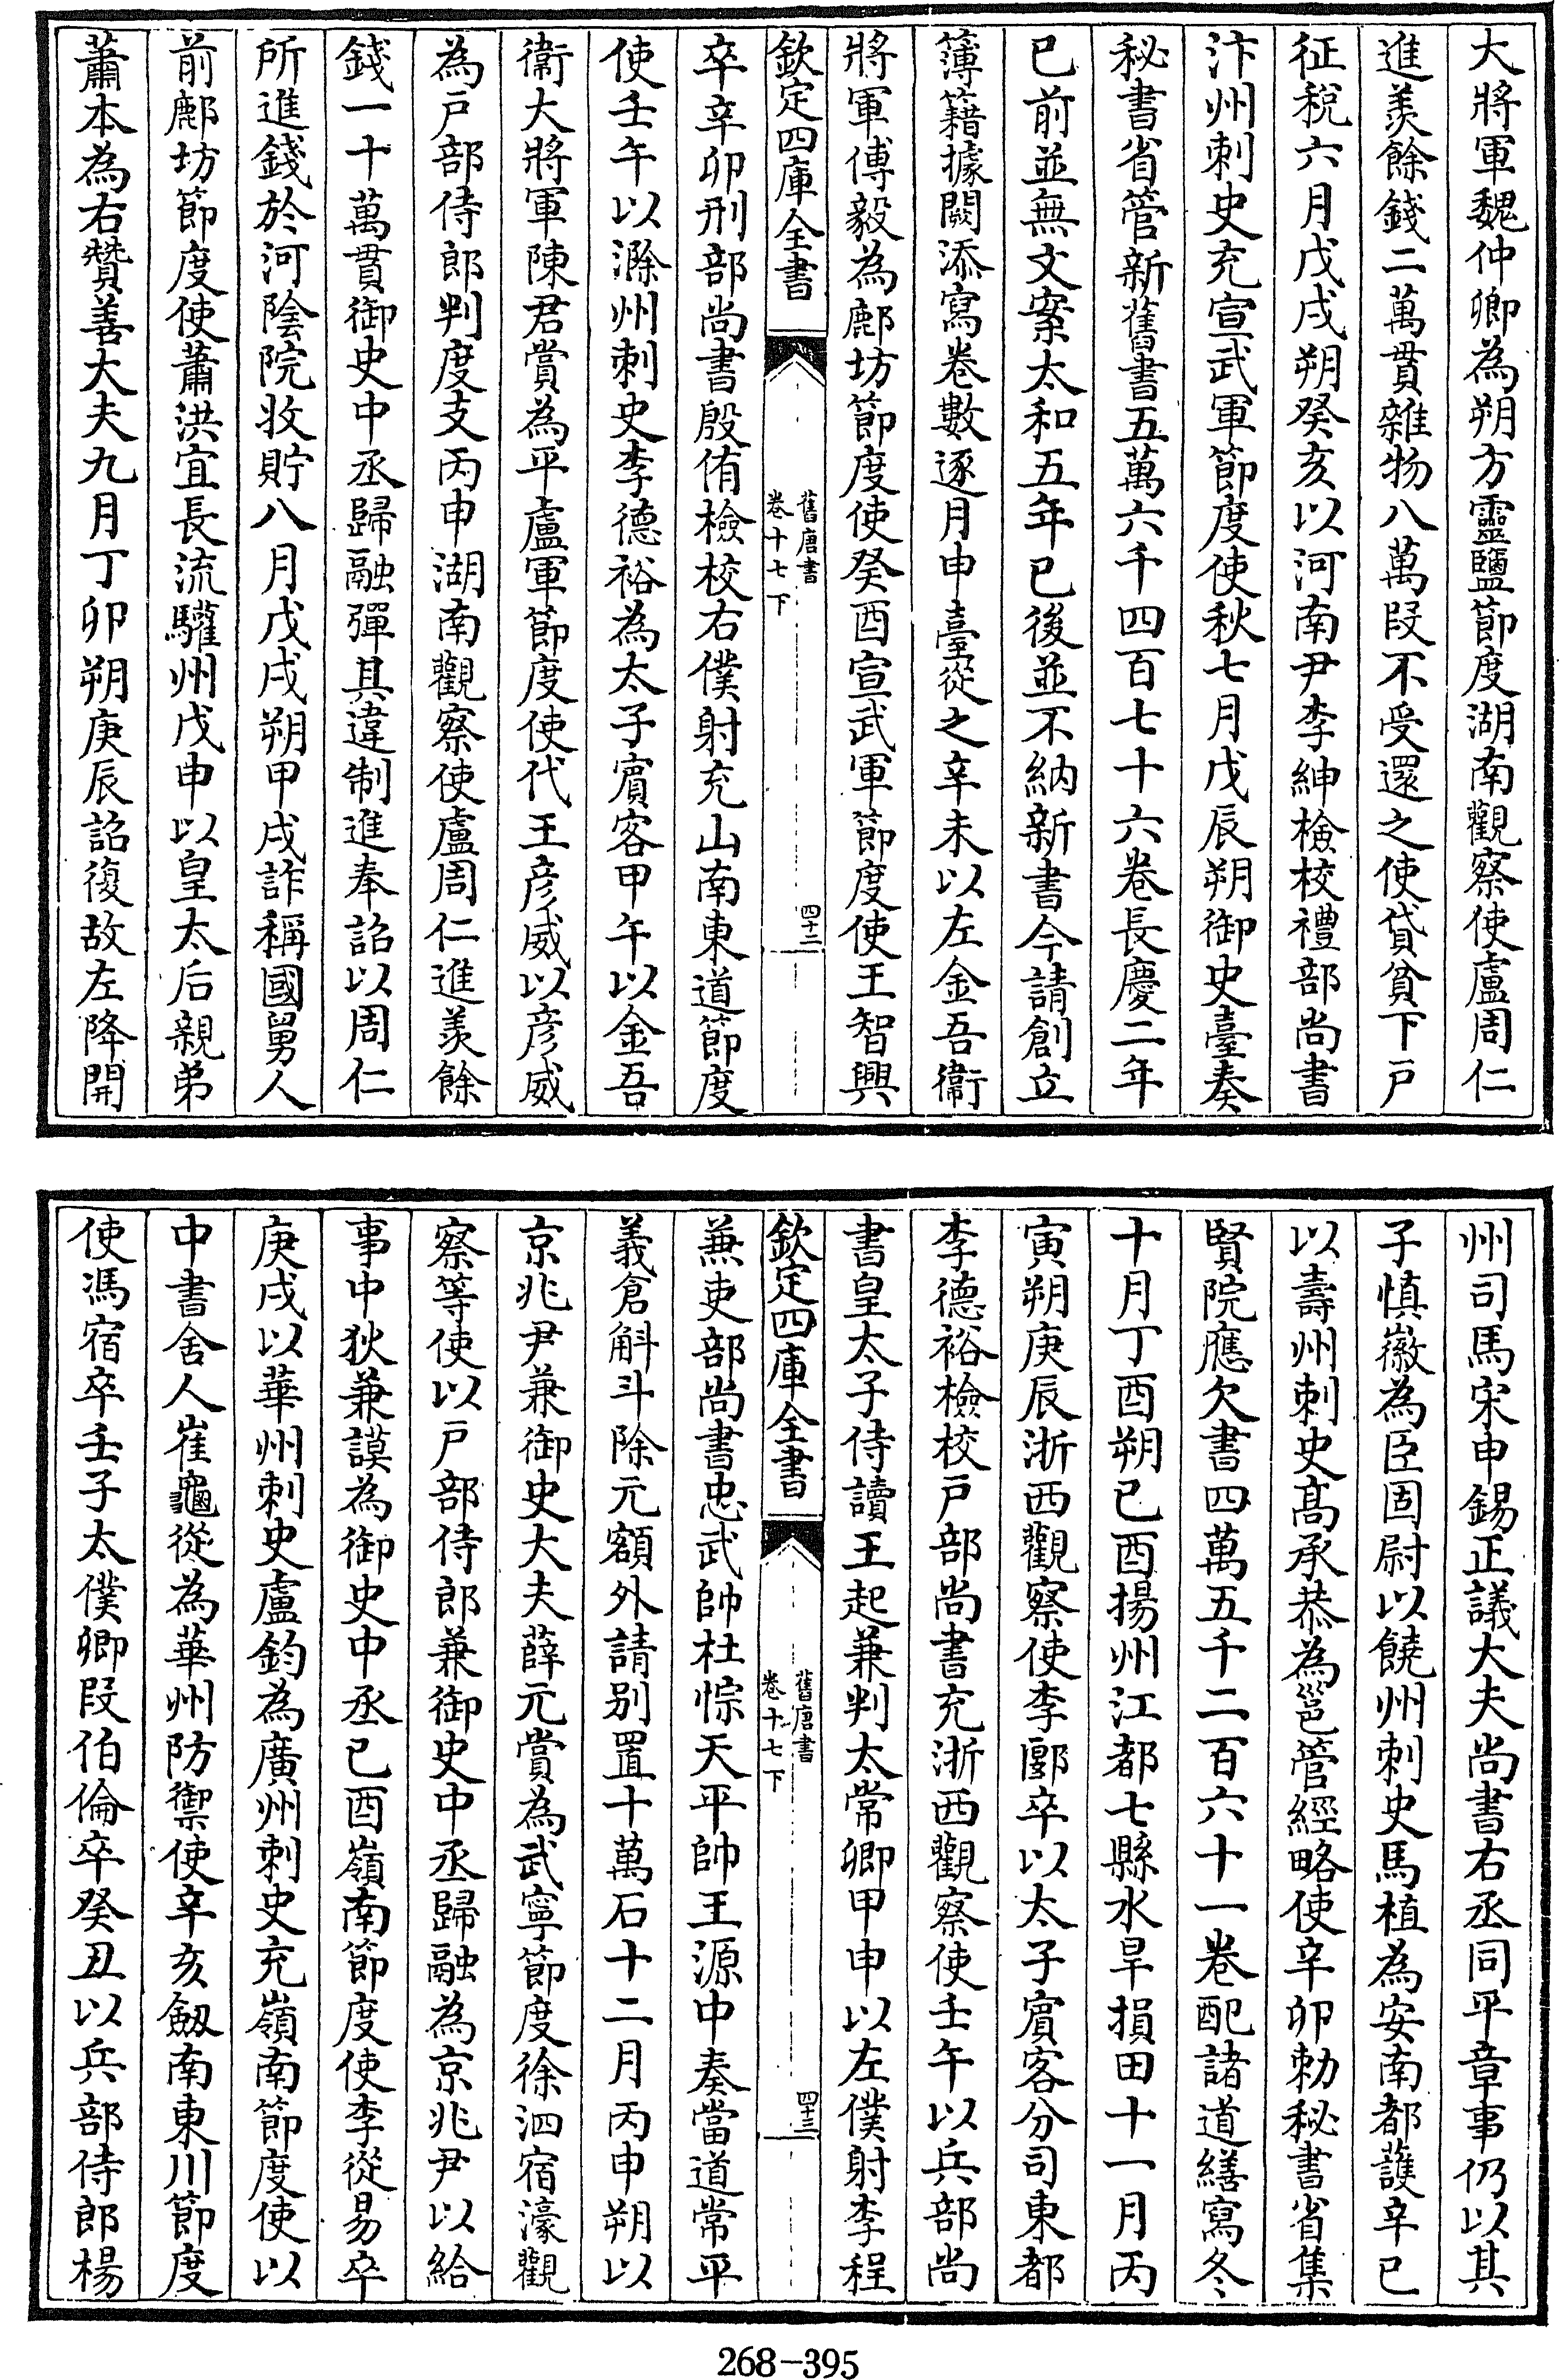 大將軍魏仲卿為朔方靈鹽節度湖南觀察使盧周仁
進羨餘錢二萬貫雜物八萬段不受還之使貸貧下戶
征稅六月戊戌朔癸亥以河南尹李紳檢校禮部尚書
汴州刺史充宣武軍節度使秋七月戊辰朔御史臺奏
秘書省管新舊書五萬六千四百七十六卷長慶二年
已前並無文案太和五年已後並不納新書今請創立
簿籍據闕添寫卷數逐月申臺從之辛未以左金吾衛
將軍傅毅為鄜坊節度使癸酉宣武軍節度使王智興
欽定四庫全書
舊唐書
卷十七下
四十二
卒辛卯刑部尚書殷侑檢校右僕射充山南東道節度
使壬午以滁州刺史李德裕為太子賓客甲午以金吾
衞大將軍陳君賞為平盧軍節度使代王彦威以彦威
為戶部侍郎判度支丙申湖南觀察使盧周仁進羨餘
錢一十萬貫御史中丞歸融彈其違制進奉詔以周仁
所進錢於河陰院收貯八月戊戌朔甲戌詐稱國舅人
前鄜坊節度使蕭洪宜長流驩州戊申以皇太后親弟
蕭本為右贊善大夫九月丁卯朔庚辰詔復故左降開
州司馬宋申錫正議大夫尚書右丞同平章事仍以其
子慎徽為臣固尉以饒州刺史馬植為安南都護辛巳
以壽州刺史髙承恭為邕管經略使辛卯勅秘書省集
賢院應欠書四萬五千二百六十一卷配諸道繕寫冬
十月丁酉朔己酉揚州江都七縣水旱損田十一月丙
寅朔庚辰浙西觀察使李郾卒以太子賓客分司東都
李德裕檢校戶部尚書充浙西觀察使壬午以兵部尚
書皇太子侍讀王起兼判太常卿甲申以左僕射李程
欽定四庫全書
舊唐書
卷十七下
四十三
兼吏部尚書忠武帥杜悰天平帥王源中奏當道常平
義倉斛斗除元額外請别置十萬石十二月丙申朔以
京兆尹兼御史大夫薛元賞為武寧節度徐泗宿濠觀
察等使以戶部侍郎兼御史中丞歸融為京兆尹以給
事中狄兼謨為御史中丞己酉嶺南節度使李從易卒
庚戌以華州刺史盧鈞為廣州刺史充嶺南節度使以
中書舍人崔龜從為華州防禦使辛亥劔南東川節度
使馮宿卒壬子太僕卿段伯倫卒癸丑以兵部侍郎楊
268-395